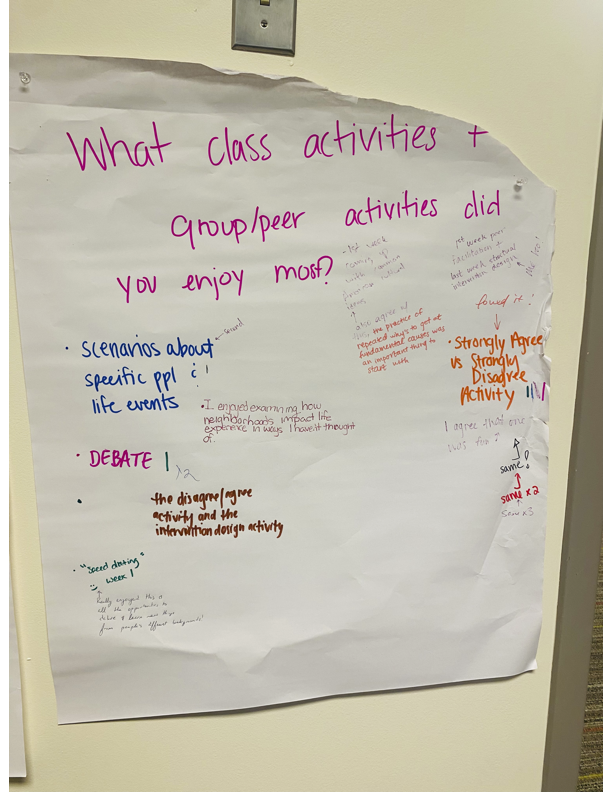 What class activities +
group/peer activities did
you enjoy most?
last week peer
facilitation +
last week structural
intervention designs
also agree w/
the practice of
repeated why's to get at
fundamental causes was
an important thing to
start with
loved it!
• Scenarios about
specific ppl &
life events
• I enjoyed examining how
neighborhoods impact life
experience in ways I haven't thought
of.
• Strongly Agree
vs Strongly
Disagree
Activity
I agree that one
was fun!
same!
same x2
same x3
• DEBATE |
x2
•
the disagree/agree
activity and the
intervention design activity
• "speed dating"
week 1
Really enjoyed this &
all the opportunities to
debate & learn new things
from people's different backgrounds!